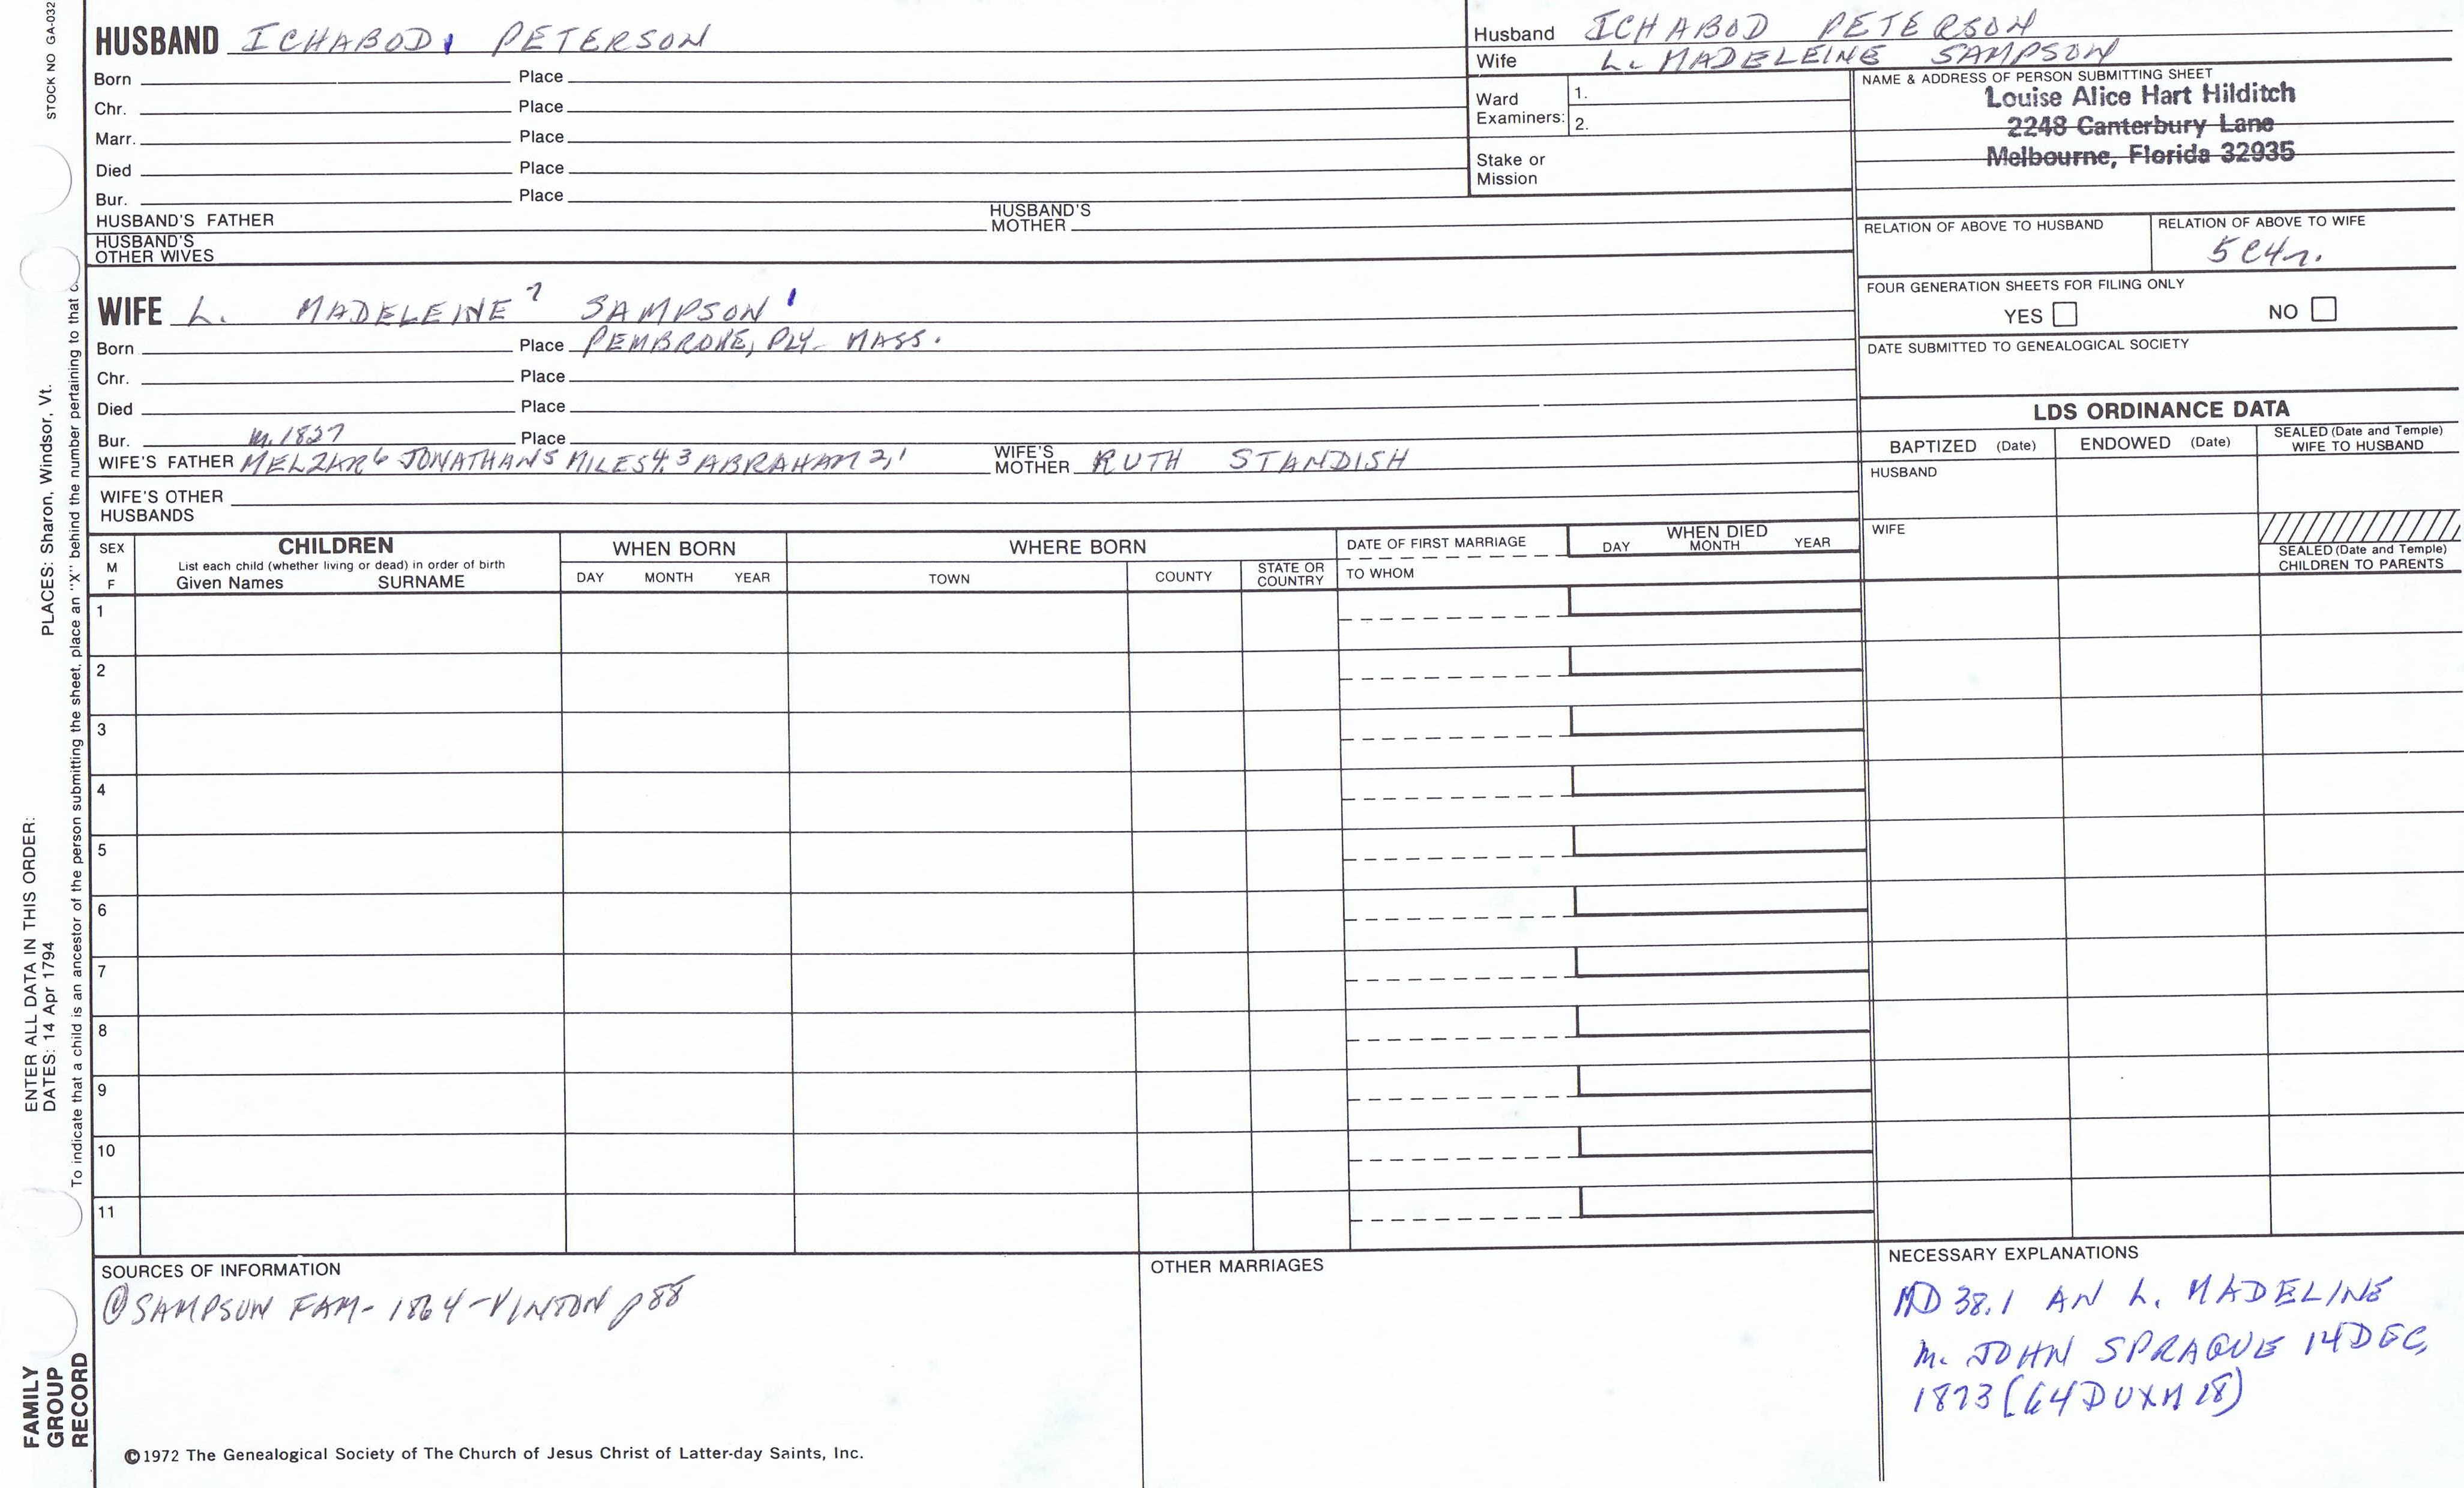 STOCK NO GA-032
HUSBAND ICHABOD 1 PETERSON
Born Place
Chr. Place
Marr. Place
Died Place
Bur. Place
HUSBAND'S FATHER HUSBAND'S MOTHER
HUSBAND'S OTHER WIVES
Husband ICHABOD PETERSON
Wife L. MADELEINE SAMPSON
Ward Examiners: 1.
2.
Stake or Mission
NAME & ADDRESS OF PERSON SUBMITTING SHEET
Louise Alice Hart Hilditch
2248 Canterbury Lane
Melbourne, Florida 32935
RELATION OF ABOVE TO HUSBAND RELATION OF ABOVE TO WIFE
5C4r.
FOUR GENERATION SHEETS FOR FILING ONLY
YES NO
DATE SUBMITTED TO GENEALOGICAL SOCIETY
WIFE L. MADELEINE 7 SAMPSON 1
Born Place PEMBROKE, PLY. MASS.
Chr. Place
Died Place
Bur. m. 1827 Place
WIFE'S FATHER MELZAR 6 JONATHAN 5 MILES 4,3 ABRAHAM 2,1 WIFE'S MOTHER RUTH STANDISH
WIFE'S OTHER HUSBANDS
LDS ORDINANCE DATA
BAPTIZED (Date) ENDOWED (Date) SEALED (Date and Temple) WIFE TO HUSBAND
HUSBAND
WIFE
SEALED (Date and Temple) CHILDREN TO PARENTS
SEX M F
CHILDREN
List each child (whether living or dead) in order of birth
Given Names SURNAME
WHEN BORN
DAY MONTH YEAR
WHERE BORN
TOWN COUNTY STATE OR COUNTRY
DATE OF FIRST MARRIAGE
TO WHOM
WHEN DIED
DAY MONTH YEAR
1
2
3
4
5
6
7
8
9
10
11
SOURCES OF INFORMATION
① SAMPSON FAM- 1864-VINTON p88
OTHER MARRIAGES
NECESSARY EXPLANATIONS
MD 38.1 AN L. MADELINE
m. JOHN SPRAGUE 14 DEC,
1873 (64 DUXM 18)
©1972 The Genealogical Society of The Church of Jesus Christ of Latter-day Saints, Inc.
PLACES: Sharon, Windsor, Vt.
ENTER ALL DATA IN THIS ORDER:
DATES: 14 Apr 1794
To indicate that a child is an ancestor of the person submitting the sheet, place an "X" behind the number pertaining to that
FAMILY
GROUP
RECORD